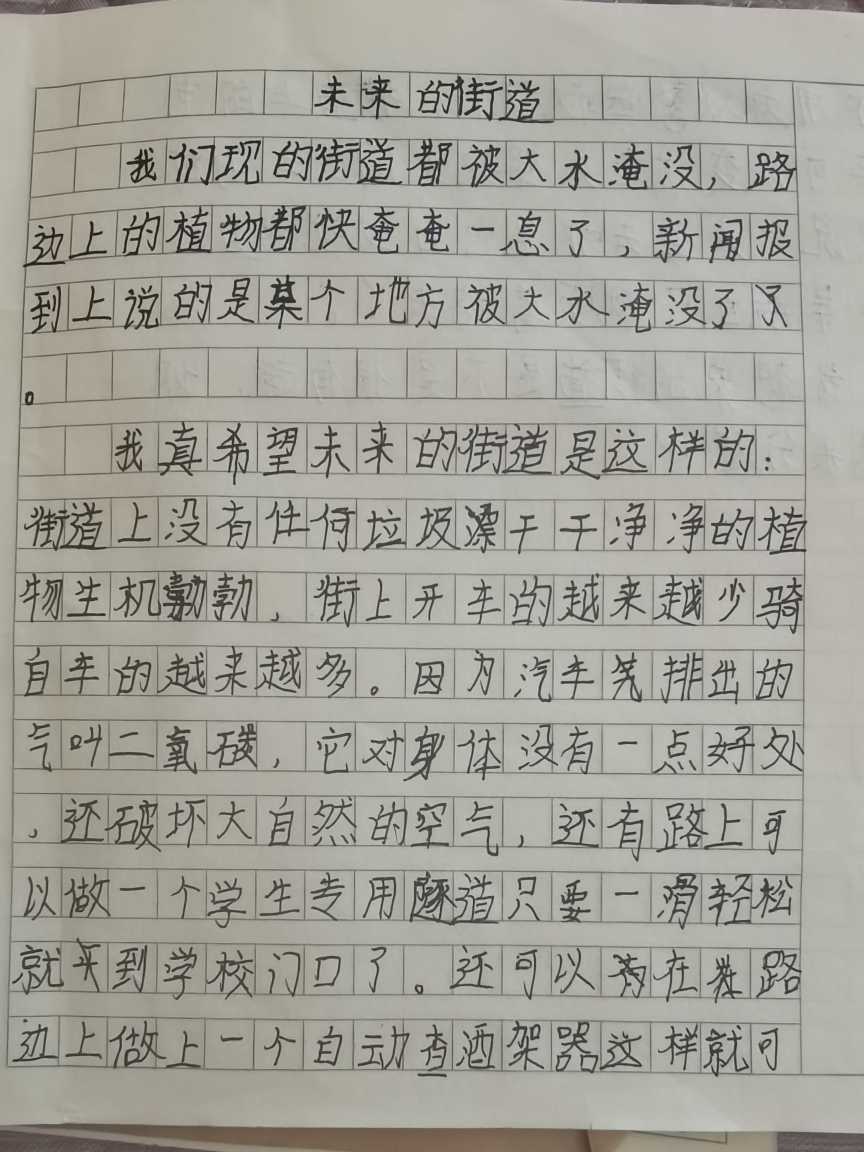 未来的街道
我们现的街道都被大水淹没，路
边上的植物都快奄奄一息了，新闻报
到上说的是某个地方被大水淹没了了
。
我真希望未来的街道是这样的：
街道上没有任何垃圾漂干干净净的植
物生机勃勃，街上开车的越来越少骑
自车的越来越多。因为汽车笐排出的
气叫二氧碳，它对身体没有一点好处
，还破坏大自然的空气，还有路上可
以做一个学生专用隧道只要一滑轻松
就到学校门口了。还可以在路
边上做上一个自动查酒架器这样就可